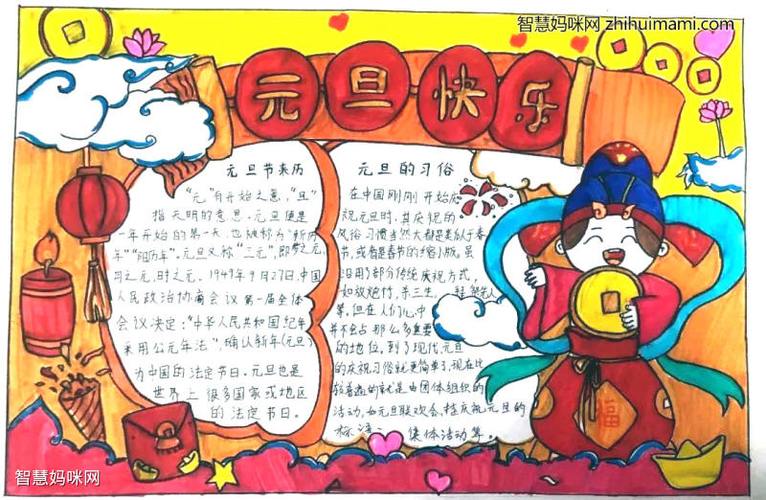 智慧妈咪网 zhihuimami.com
元旦快乐
元旦节来历
"元"有开始之意,"旦"
指天明的意思。元旦便是
一年开始的第一天,也被称为"新历
年""阳历年"。元旦又称"三元",即岁之元、
月之元、时之元。1949年9月27日,中国
人民政治协商会议第一届全体
会议决定:"中华人民共和国纪年
采用公元年法",确认新年(元旦)
为中国的法定节日。元旦也是
世界上很多国家或地区
的法定节日。
元旦的习俗
在中国刚刚开始庆
祝元旦时,其庆祝的
风俗习惯当然大都是类似于春
节,或者是春节的缩小版。虽
沿用了部分传统庆祝方式,
如放炮竹、杀三生、
等,但在人们心中
并不会占那么多重要
的地位。到了现代,元旦
的庆祝习俗就更简单了,现在比
较普遍的就是由团体组织的
活动,如元旦联欢会、挂庆祝元旦的
标语、集体活动等。
福
智慧妈咪网